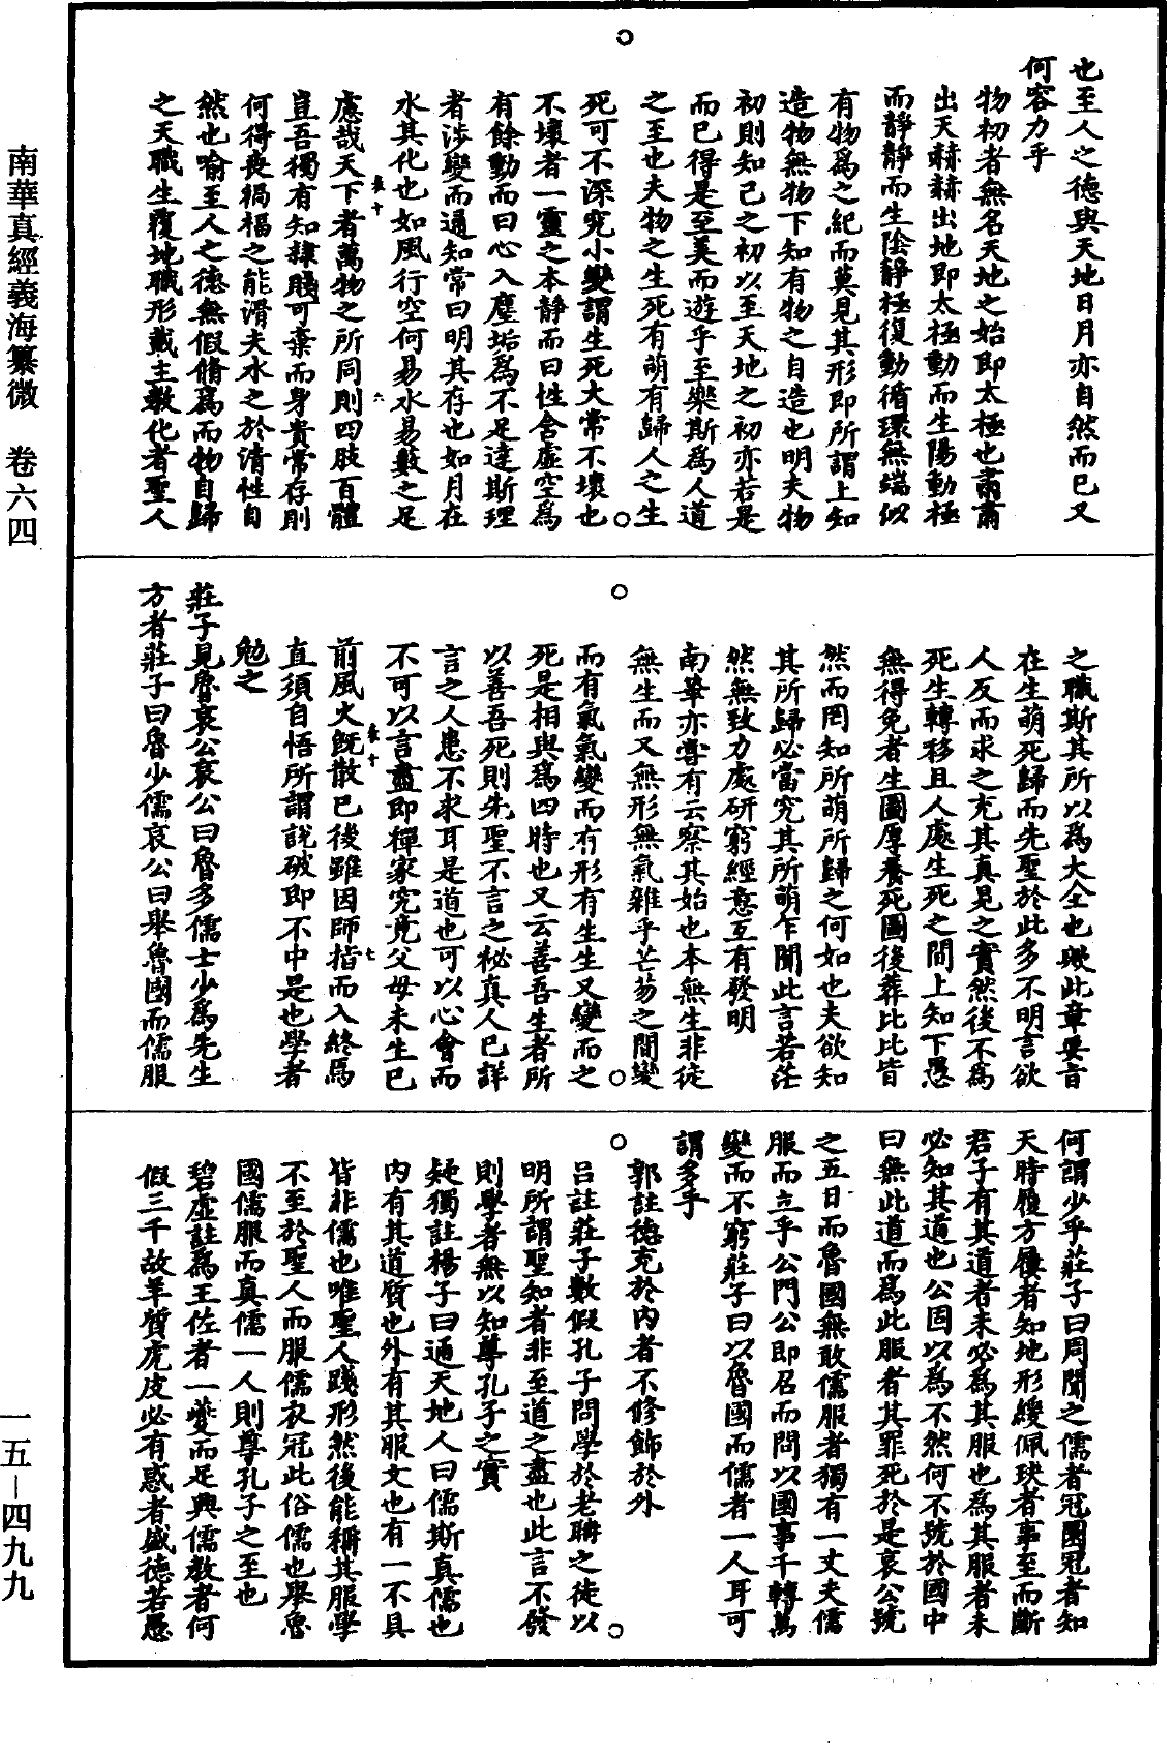 南華真經義海纂微　卷六四
一五—四九九
也至人之德與天地日月亦自然而已又
何容力乎
物初者無名天地之始即太極也肅肅
出天赫赫出地即太極動而生陽動極
而靜靜而生陰靜極復動循環無端似
有物為之紀而莫見其形即所謂上知
造物無物下知有物之自造也明夫物
初則知己之初以至天地之初亦若是
而已得是至美而遊乎至樂斯為人道
之至也夫物之生死有萌有歸人之生
死可不深究小變謂生死大常不壞也
不壞者一靈之本靜而曰性含虛空為
有餘動而曰心入塵垢為不足達斯理
者涉變而通知常曰明其存也如月在
水其化也如風行空何易水易藪之足
慮哉天下者萬物之所同則四肢百體
豈吾獨有知隸賤可棄而身貴常存則
何得喪禍福之能滑夫水之於清性自
然也喻至人之德無假脩為而物自歸
之天職生覆地職形載主教化者聖人
之職斯其所以為大全也歟此章要旨
在生萌死歸而先聖於此多不明言欲
人反而求之充其真見之實然後不為
死生轉移且人處生死之間上知下愚
無得免者生圖厚養死圖後葬比比皆
然而罔知所萌所歸之何如也夫欲知
其所歸必當究其所萌乍聞此言若茫
然無致力處研窮經意互有發明
南華亦嘗有云察其始也本無生非徒
無生而又無形無氣雜乎芒芴之間變
而有氣氣變而有形有生生又變而之
死是相與為四時也又云善吾生者所
以善吾死則先聖不言之秘真人已詳
言之人患不求耳是道也可以心會而
不可以言盡即禪家究竟父母未生已
前風火既散已後雖因師指而入終焉
直須自悟所謂說破即不中是也學者
勉之
莊子見魯哀公哀公曰魯多儒士少為先生
方者莊子曰魯少儒哀公曰舉魯國而儒服
何謂少乎莊子曰周聞之儒者冠圜冠者知
天時履方屨者知地形緩佩玦者事至而斷
君子有其道者未必為其服也為其服者未
必知其道也公固以為不然何不號於國中
曰無此道而為此服者其罪死於是哀公號
之五日而魯國無敢儒服者獨有一丈夫儒
服而立乎公門公即召而問以國事千轉萬
變而不窮莊子曰以魯國而儒者一人耳可
謂多乎
郭註德充於內者不修飾於外
呂註莊子數假孔子問學於老聃之徒以
明所謂聖知者非至道之盡也此言不發
則學者無以知尊孔子之實
疑獨註楊子曰通天地人曰儒斯真儒也
內有其道質也外有其服文也有一不具
皆非儒也唯聖人踐形然後能稱其服學
不至於聖人而服儒衣冠此俗儒也舉魯
國儒服而真儒一人則尊孔子之至也
碧虛註為王佐者一夔而足興儒教者何
假三千故羊質虎皮必有惑者盛德若愚